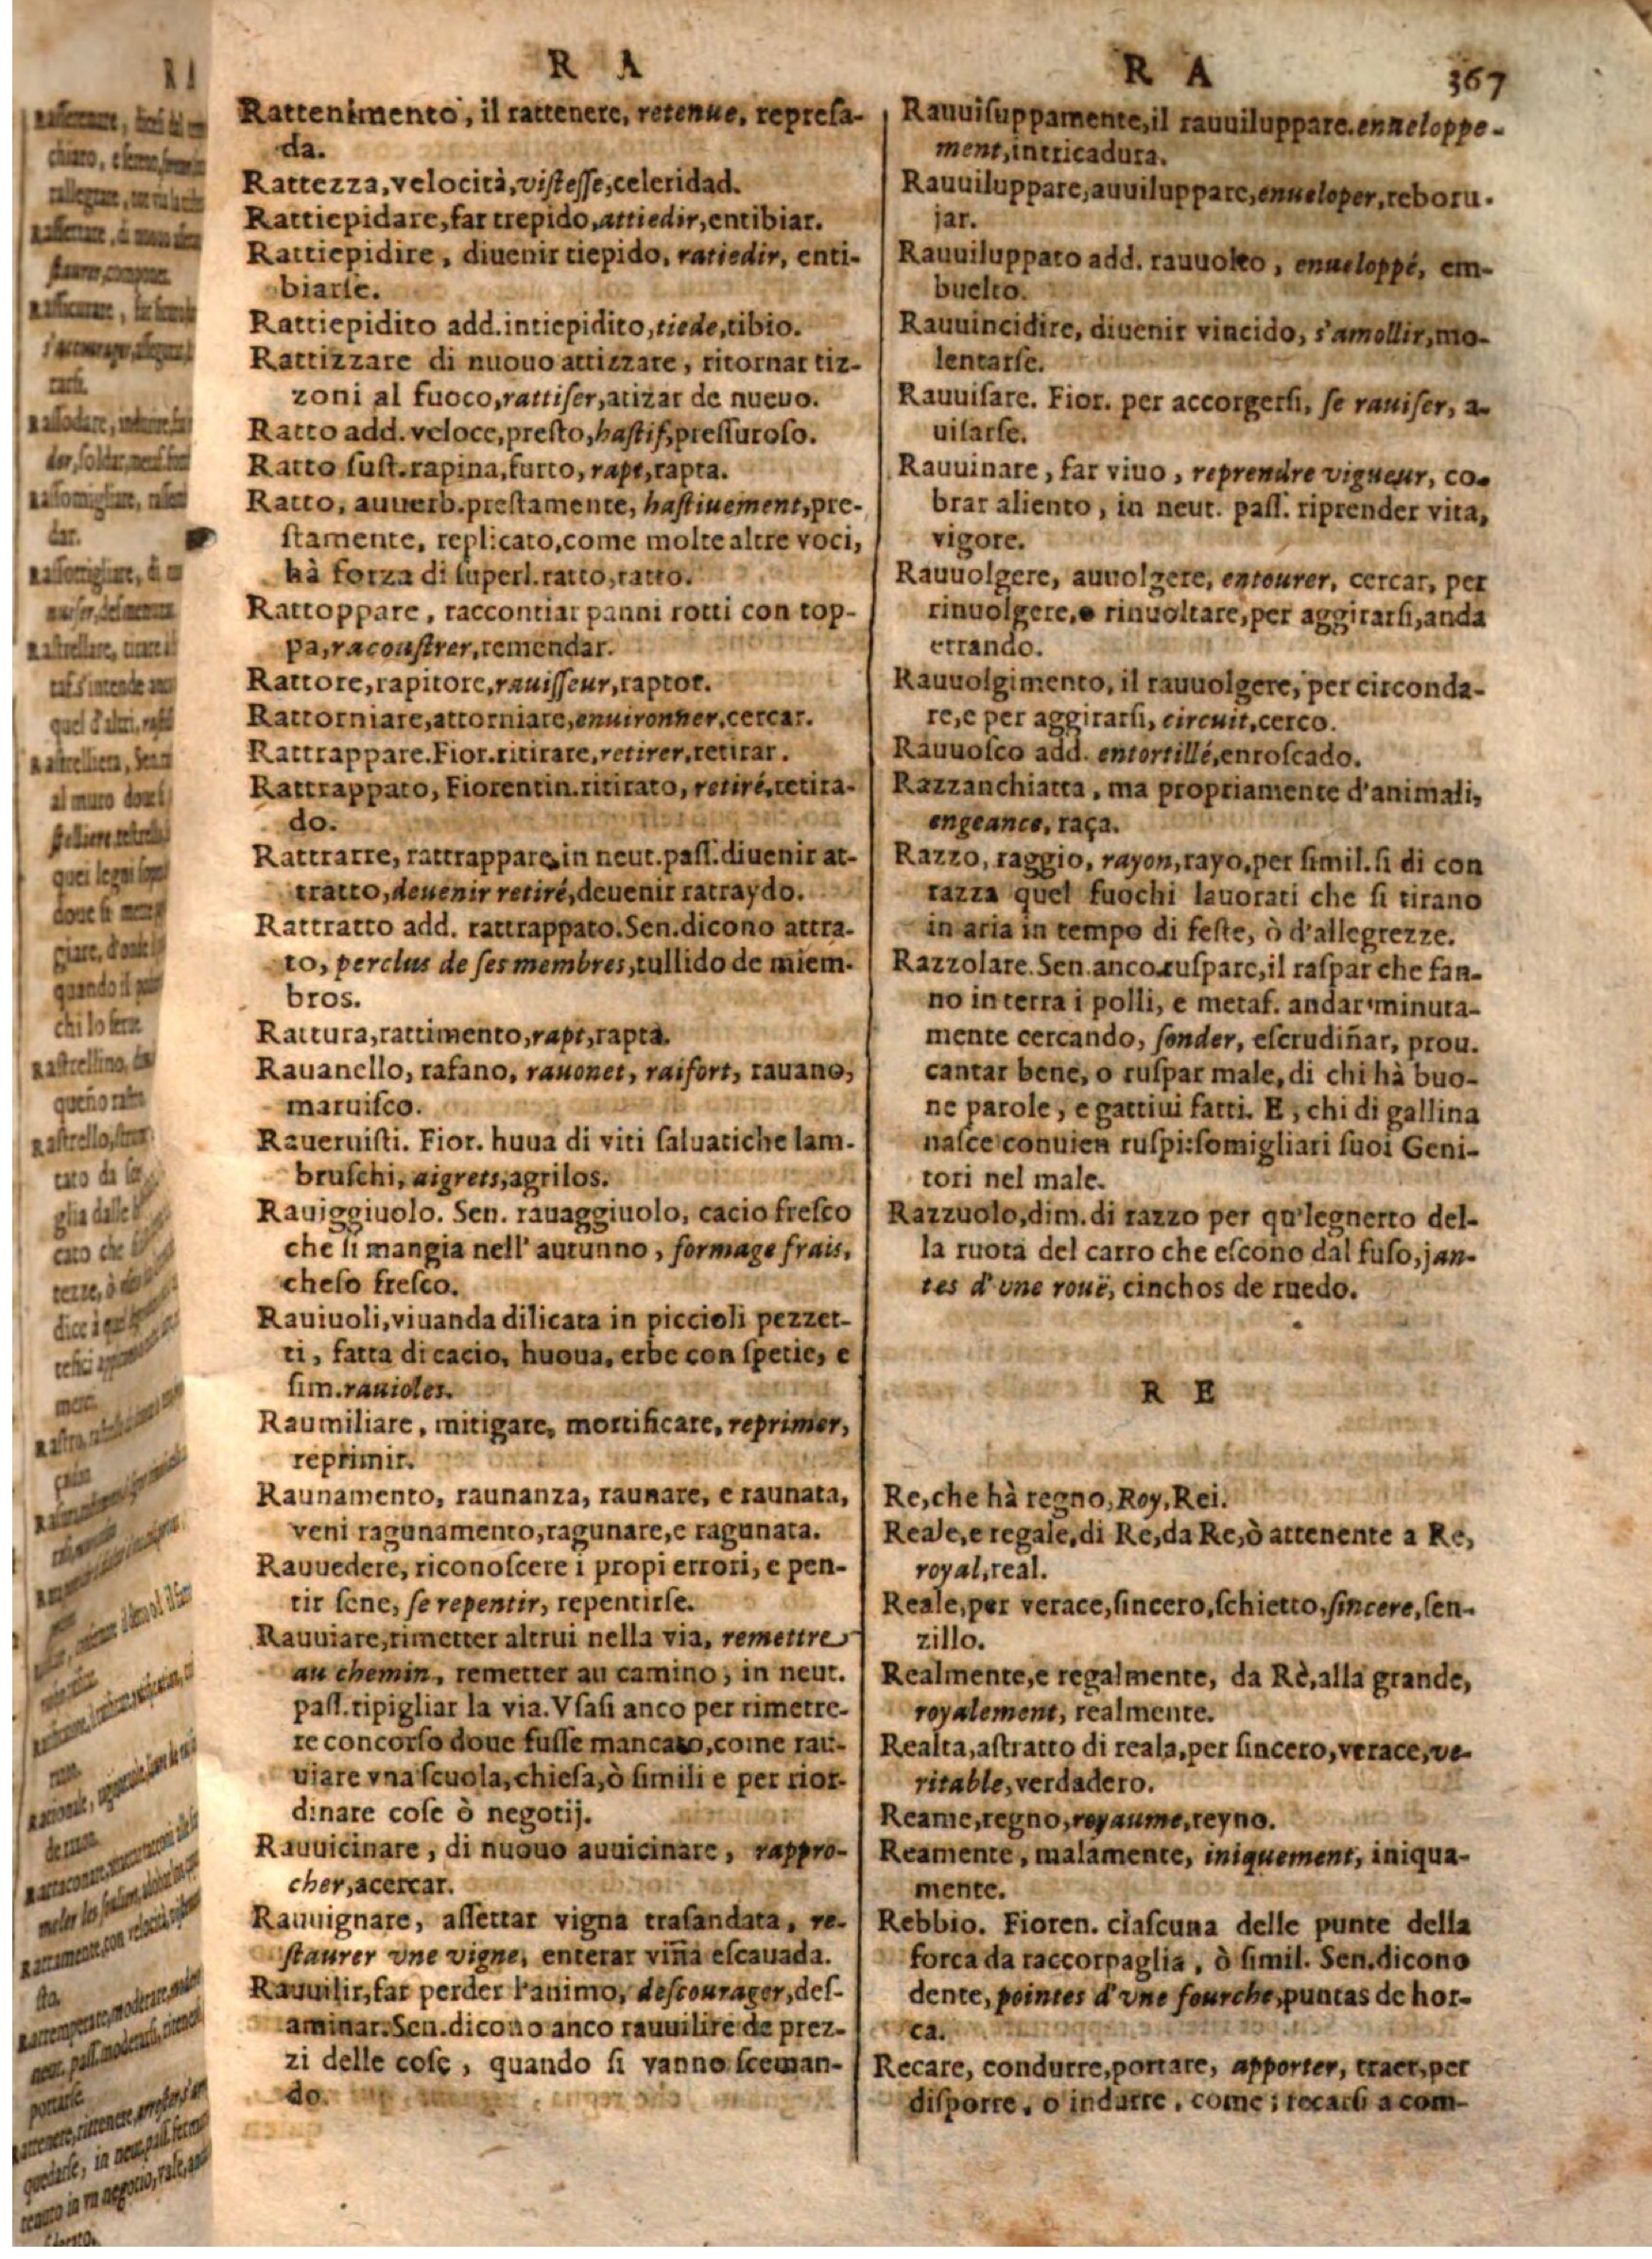 R A
Rattenimento, il rattenere, retenue, represa-
da.
Rattezza, velocità, vistesse, celeridad.
Rattiepidare, far trepido, attiedir, entibiar.
Rattiepidire, diuenir tiepido, ratiedir, enti-
biarse.
Rattiepidito add. intiepidito, tiede, tibio.
Rattizzare di nuouo attizzare, ritornar tiz-
zoni al fuoco, rattiser, atizar de nueuo.
Ratto add. veloce, presto, hastif, pressuroso.
Ratto sust. rapina, furto, rapt, rapta.
Ratto, auuerb. prestamente, hastiuement, pre-
stamente, replicato, come molte altre voci,
hà forza di superl. ratto, ratto.
Rattoppare, raccontiar panni rotti con top-
pa, racoustrer, remendar.
Rattore, rapitore, rauisseur, raptor.
Rattorniare, attorniare, enuironner, cercar.
Rattrappare. Fior. ritirare, retirer, retirar.
Rattrappato, Fiorentin. ritirato, retiré, retira-
do.
Rattrarre, rattrappare, in neut. pass. diuenir at-
tratto, deuenir retiré, deuenir ratraydo.
Rattratto add. rattrappato. Sen. dicono attra-
to, perclus de ses membres, tullido de miem-
bros.
Rattura, rattimento, rapt, rapta.
Rauanello, rafano, rauonet, raifort, rauano,
maruisco.
Raueruisti. Fior. huua di viti saluatiche lam-
bruschi, aigrets, agrilos.
Rauiggiuolo. Sen. rauaggiuolo, cacio fresco
che si mangia nell' autunno, formage frais,
cheso fresco.
Rauiuoli, viuanda dilicata in piccioli pezzet-
ti, fatta di cacio, huoua, erbe con spetie, e
sim. rauioles.
Raumiliare, mitigare, mortificare, reprimer,
reprimir.
Raunamento, raunanza, raunare, e raunata,
veni ragunamento, ragunare, e ragunata.
Rauuedere, riconoscere i propi errori, e pen-
tir sene, se repentir, repentirse.
Rauuiare, rimetter altrui nella via, remettre
au chemin, remetter au camino, in neut.
pass. ripigliar la via. Vsasi anco per rimette-
re concorso doue fusse mancato, come rau-
uiare vna scuola, chiesa, ò simili e per rior-
dinare cose ò negotij.
Rauuicinare, di nuouo auuicinare, rappro-
cher, acercar.
Rauuignare, assettar vigna trasandata, re-
staurer vne vigne, enterar viña escauada.
Rauuilir, far perder l'animo, descourager, des-
aminar. Sen. dicono anco rauuilire de prez-
zi delle cose, quando si vanno sceman-
do.
R A 367
Rauuisuppamente, il rauuiluppare. enneloppe-
ment, intricadura.
Rauuiluppare, auuiluppare, enueloper, reboru-
jar.
Rauuiluppato add. rauuolto, enueloppé, em-
buelto.
Rauuincidire, diuenir vincido, s'amollir, mo-
lentarse.
Rauuisare. Fior. per accorgersi, se rauiser, a-
uisarse.
Rauuinare, far viuo, reprendre vigueur, co-
brar aliento, in neut. pass. riprender vita,
vigore.
Rauuolgere, auuolgere, entourer, cercar, per
rinuolgere, e rinuoltare, per aggirarsi, anda
errando.
Rauuolgimento, il rauuolgere, per circonda-
re, e per aggirarsi, circuit, cerco.
Rauuosco add. entortillé, enroscado.
Razzanchiatta, ma propriamente d'animali,
engeance, raça.
Razzo, raggio, rayon, rayo, per simil. si di con
razza quel fuochi lauorati che si tirano
in aria in tempo di feste, ò d'allegrezze.
Razzolare. Sen. anco ruspare, il raspar che fan-
no in terra i polli, e metaf. andar minuta-
mente cercando, sonder, escrudiñar, prou.
cantar bene, o ruspar male, di chi hà buo-
ne parole, e gattiui fatti. E, chi di gallina
nasce conuien ruspi: somigliari suoi Geni-
tori nel male.
Razzuolo, dim. di razzo per qu'legnerto del-
la ruota del carro che escono dal fuso, jan-
tes d'vne rouë, cinchos de ruedo.
R E
Re, che hà regno, Roy, Rei.
Reale, e regale, di Re, da Re, ò attenente a Re,
royal, real.
Reale, per verace, sincero, schietto, sincere, sen-
zillo.
Realmente, e regalmente, da Rè, alla grande,
royalement, realmente.
Realta, astratto di reala, per sincero, verace, ve-
ritable, verdadero.
Reame, regno, royaume, reyno.
Reamente, malamente, iniquement, iniqua-
mente.
Rebbio. Fioren. ciascuna delle punte della
forca da raccorpaglia, ò simil. Sen. dicono
dente, pointes d'vne fourche, puntas de hor-
ca.
Recare, condurre, portare, apporter, traer, per
disporre, o indurre, come; recarsi a com-